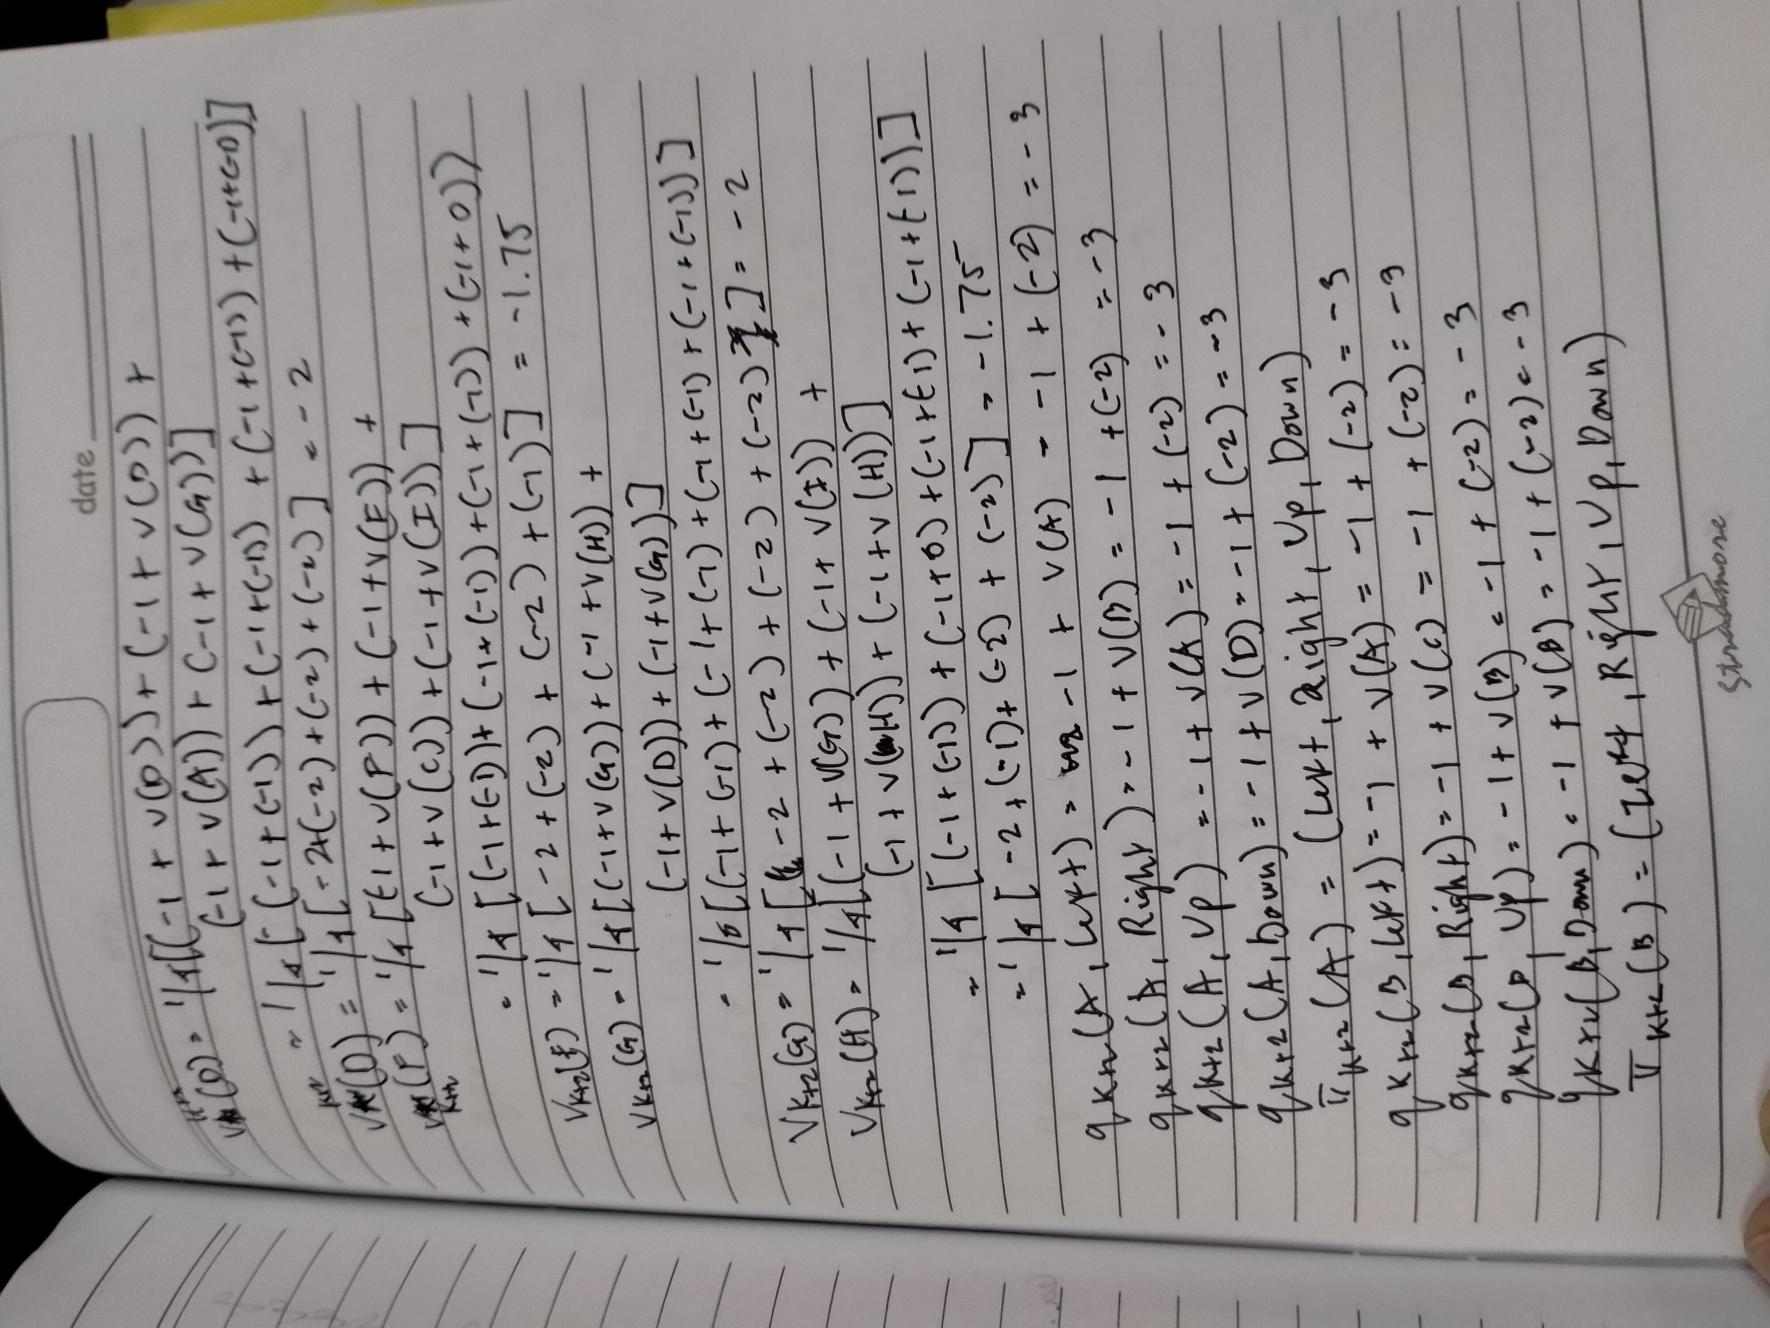 date
V K+2 (D) = 1/4[(-1 + V(D)) + (-1 + V(D)) +
(-1 + V(A)) + (-1 + V(G))]
= 1/4 [(-1 + (-1)) + (-1 + (-1)) + (-1 + (-1)) + (-1 + (-1))]
V K+2 (D) = 1/4 [-2 + (-2) + (-2) + (-2)] = -2
V K+2 (F) = 1/4 [(-1 + V(F)) + (-1 + V(F)) +
(-1 + V(C)) + (-1 + V(I))]
= 1/4 [(-1 + (-1)) + (-1 + (-1)) + (-1 + (-1)) + (-1 + 0))
V K+2 (F) = 1/4 [-2 + (-2) + (-2) + (-1)] = -1.75
V K+2 (G) = 1/4 [(-1 + V(G)) + (-1 + V(H)) +
(-1 + V(D)) + (-1 + V(G))]
= 1/4 [(-1 + (-1) + (-1 + (-1) + (-1 + (-1) + (-1 + (-1))]
V K+2 (G) = 1/4 [-2 + (-2) + (-2) + (-2)] = -2
V K+2 (H) = 1/4 [(-1 + V(G)) + (-1 + V(I)) +
(-1 + V(H)) + (-1 + V(H))]
= 1/4 [(-1 + (-1)) + (-1 + 0) + (-1 + (-1) + (-1 + (-1))]
= 1/4 [-2 + (-1) + (-2) + (-2)] = -1.75
q K+2 (A, Left) = -1 + V(A) = -1 + (-2) = -3
q K+2 (A, Right) = -1 + V(B) = -1 + (-2) = -3
q K+2 (A, Up) = -1 + V(A) = -1 + (-2) = -3
q K+2 (A, Down) = -1 + V(D) = -1 + (-2) = -3
π K+2 (A) = (Left, Right, Up, Down)
q K+2 (B, Left) = -1 + V(A) = -1 + (-2) = -3
q K+2 (B, Right) = -1 + V(C) = -1 + (-2) = -3
q K+2 (B, Up) = -1 + V(B) = -1 + (-2) = -3
q K+2 (B, Down) = -1 + V(B) = -1 + (-2) = -3
π K+2 (B) = (Left, Right, Up, Down)
Stradmore